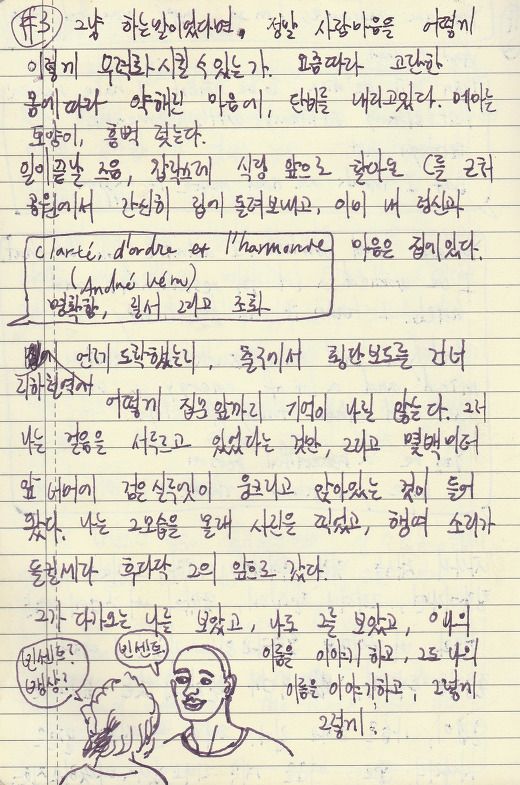 #3 그냥 하는말이었다면, 정말 사람마음을 어떻게
이렇게 무력화시킬 수 있는가. 요즘따라 고단한
몸에 따라 약해진 마음에, 단비를 내리고있다. 메마른
토양이, 흠뻑 젖는다.
일이 끝날 즈음, 갑작스레 식당 앞으로 찾아온 C를 근처
공원에서 간신히 집에 돌려보내고, 이미 내 정신과
마음은 집에 있다.
clarté, d'ordre et l'harmonie
(André
명확함, 질서 그리고 조화
언제 도착했는지, 출구에서 횡단보도를 건너
지하철역에서
어떻게 집문앞까지 기억이 나질 않는다. 그저
나는 걸음을 서두르고 있었다는 것만, 그리고 몇백미터
앞 너머에 검은실루엣이 웅크리고 앉아있는 것이 들어
왔다. 나는 그모습을 몰래 사진을 찍었고, 행여 소리가
들릴세라 후다닥 그의 앞으로 갔다.
그가 다가오는 나를 보았고, 나도 그를 보았고, 나의
이름을 이야기하고, 그도 나의
이름을 이야기하고, 그렇게
그렇게.
빈센트?
뱅상?
빈센트